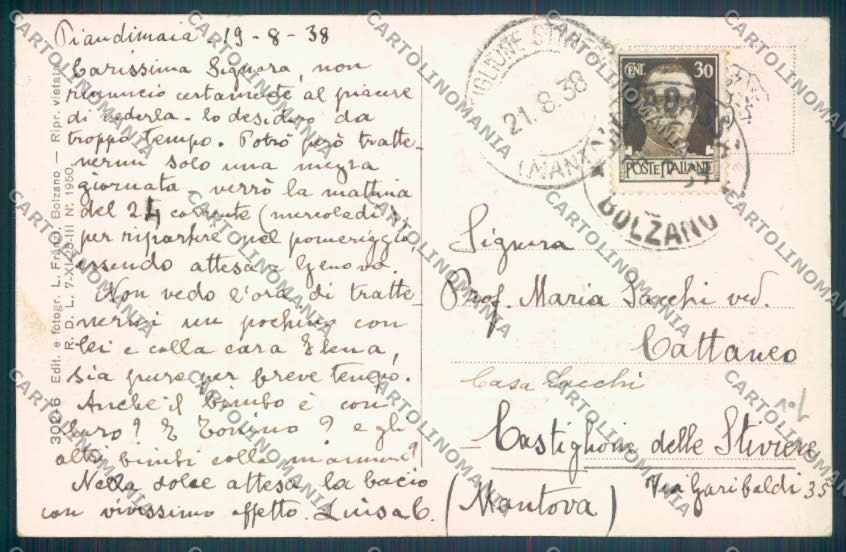 Piandimaia 19-8-38
Carissima Signora, non
rinuncio certamente al piacere
di vederla - lo desidero da
troppo tempo. Potrò però tratte-
nermi solo una mezza
giornata - verrò la mattina
del 24 corrente (mercoledì)
per ripartire nel pomeriggio,
essendo attesa a Genova.
Non vedo l'ora di tratte-
nermi un pochino con
lei e colla cara Elena,
sia pure per breve tempo.
Anche il bimbo è con
loro? E Tonino? e gli
altri bimbi colla mamma?
Nella dolce attesa la bacio
con vivissimo affetto. Luisa C.
30216 Edit. e fotogr. L. Fränzl Bolzano — Ripr. vietata
R. D. L. 7-XI-25-III N. 1950
CASTIGLIONE STIVIERE
21.8.38
(MANTOVA)
CENT. 30
POSTE ITALIANE
BOLZANO
Signora
Prof. Maria Sacchi ved.
Cattaneo
Casa Sacchi
Castiglione delle Stiviere
(Mantova) Via Garibaldi 35
CARTOLINOMANIA